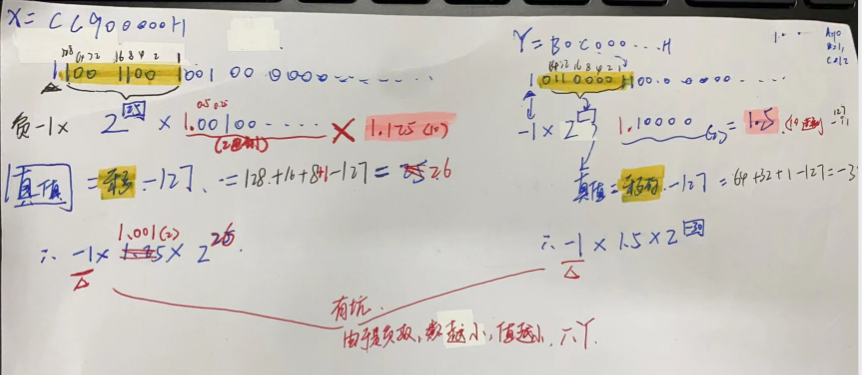 X = CC900000H
128 64 32 16 8 4 2 1
1 100 1100 1 001 00 0000
负 -1 × 2 × 1.00100…… × 1.125(10)
0.5 0.25
(2进制)
真值 = 移码 -127 = 128+16+8+1-127 = 26
∴ -1 × 1.001(2) × 2^26
Y = B0C000...H
64 32 16 8 4 2 1
1 0110000 1 100 0 0
-1 × 2 1.10000 (2) = 1.5 (10进制)
真值 = 移码 -127 = 64+32+1-127 = -3
∴ -1 × 1.5 × 2^-30
A=10
B=11
C=12
有坑.
由于是负数,数越小,值越小,∴Y.